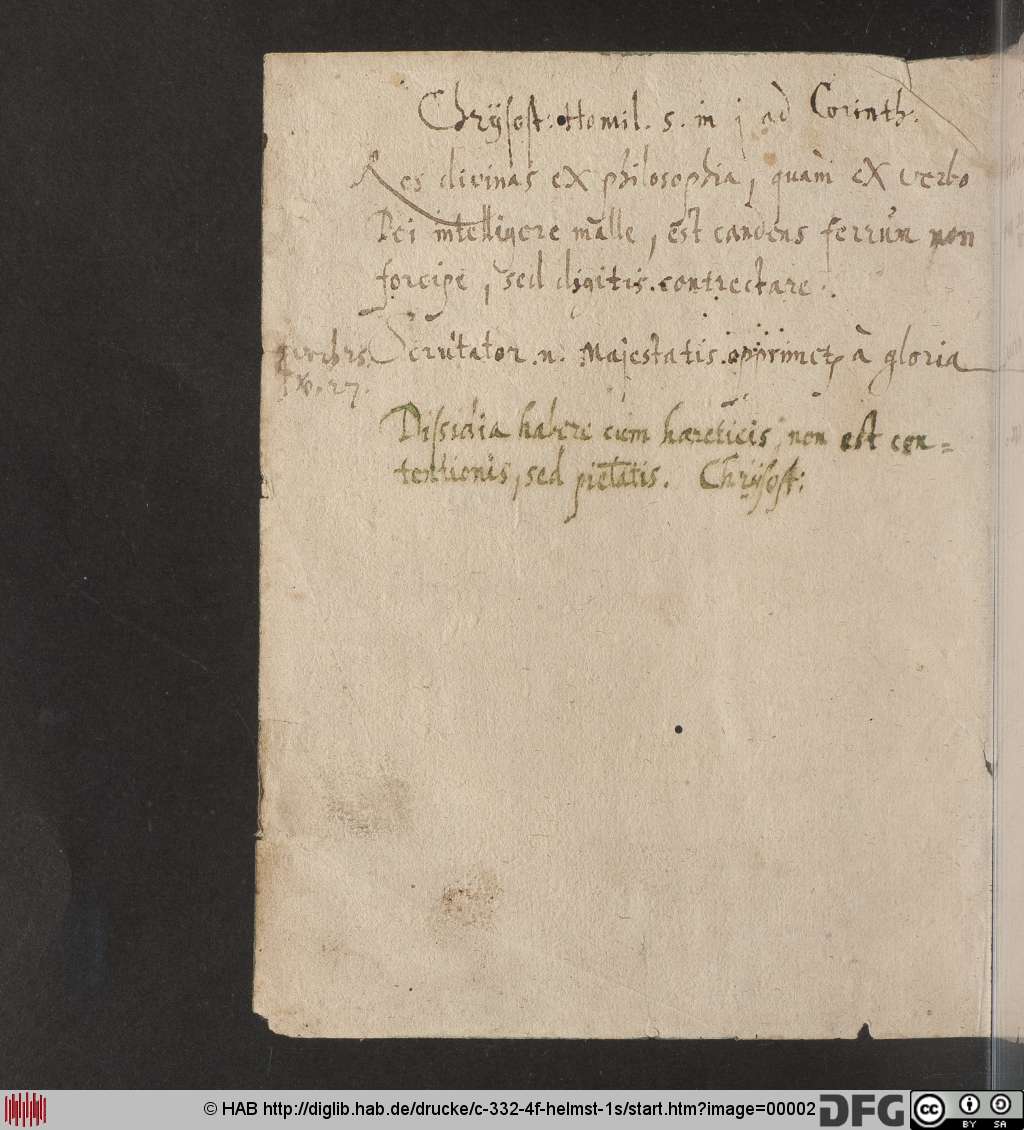 Chrÿsost: Homil. 5. in j ad Corinth.
Res divinas ex philosophia, quàm ex verbo
Dei intelligere malle, est candens ferrum non
forcipe, sed digitis contrectare.
Scrutator .n. Majestatis opprimet à gloria
27.
Dissidia habere cum haereticis, non est con=
tentionis, sed pietatis. Chrÿsost:
© HAB http://diglib.hab.de/drucke/c-332-4f-helmst-1s/start.htm?image=00002
DFG
cc BY SA